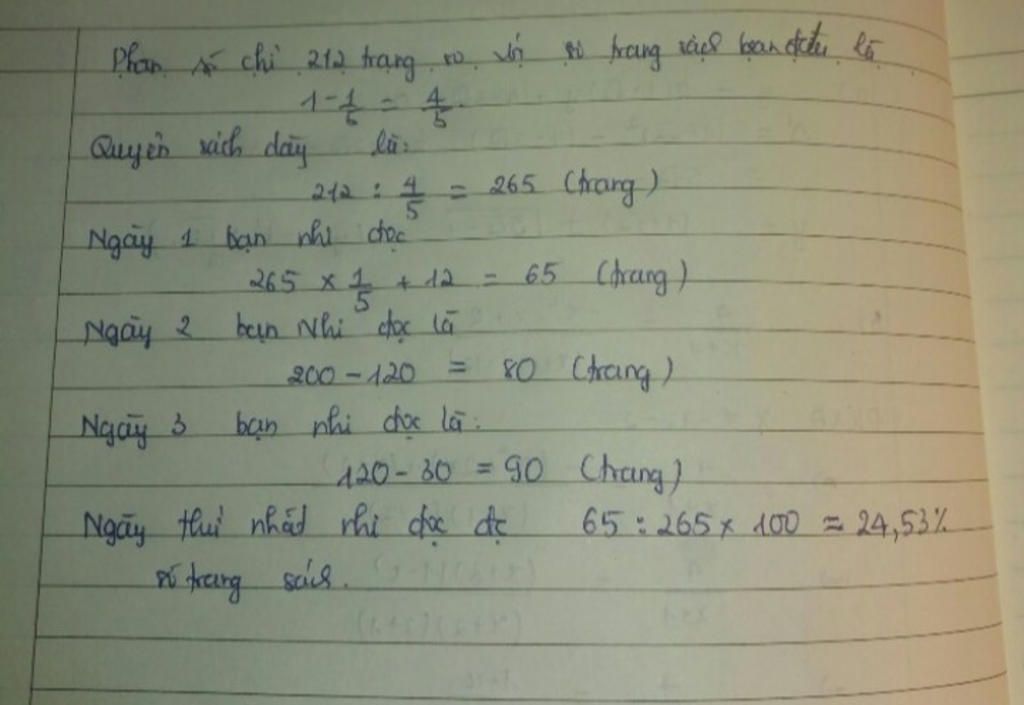 Phân số chỉ 212 trang so với số trang sách ban đầu là
1 - 1/5 = 4/5.
Quyển sách dày là:
212 : 4/5 = 265 (trang)
Ngày 1 bạn nhi đọc
265 × 1/5 + 12 = 65 (trang)
Ngày 2 bạn Nhi đọc là
200 - 120 = 80 (trang)
Ngày 3 bạn nhi đọc là:
120 - 30 = 90 (trang)
Ngày thứ nhất nhi đọc đc 65 : 265 × 100 ≈ 24,53%
số trang sách.